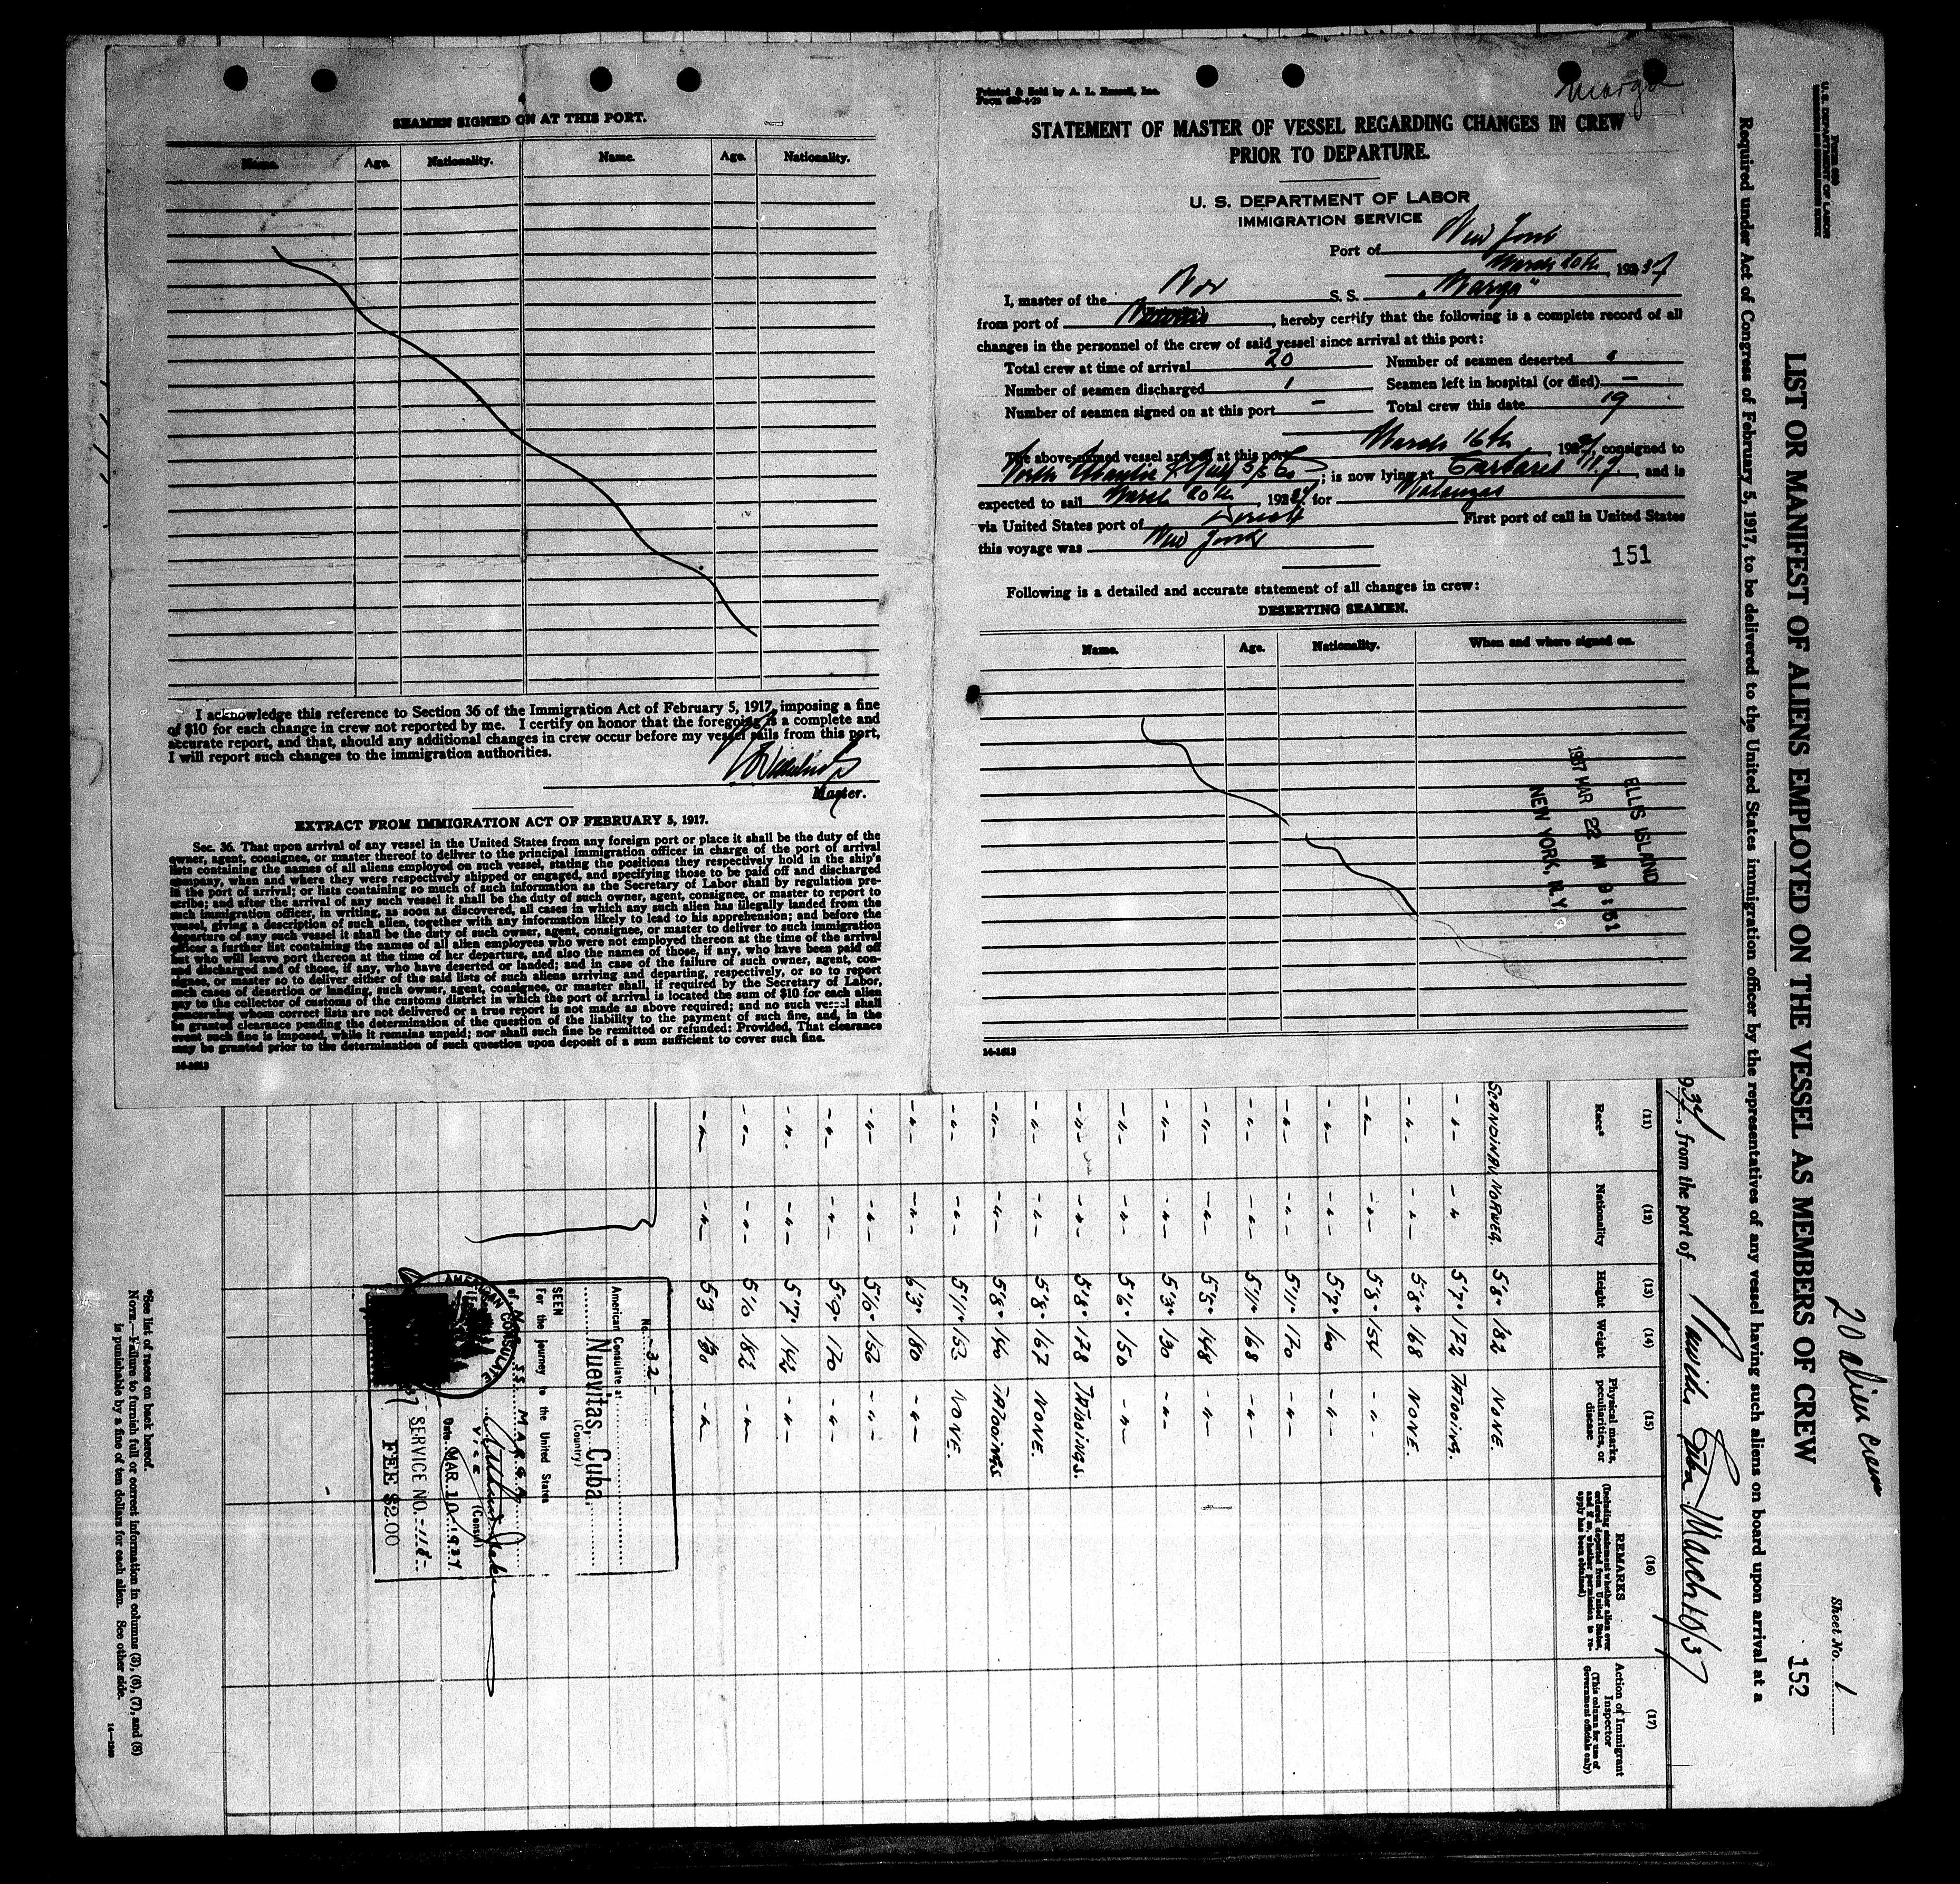 SEAMEN SIGNED ON AT THIS PORT.
Name. Age. Nationality. Name. Age. Nationality.
I acknowledge this reference to Section 36 of the Immigration Act of February 5, 1917, imposing a fine
of $10 for each change in crew not reported by me. I certify on honor that the foregoing is a complete and
accurate report, and that, should any additional changes in crew occur before my vessel sails from this port,
I will report such changes to the immigration authorities.
Master.
EXTRACT FROM IMMIGRATION ACT OF FEBRUARY 5, 1917.
Sec. 36. That upon arrival of any vessel in the United States from any foreign port or place it shall be the duty of the
owner, agent, consignee, or master thereof to deliver to the principal immigration officer in charge of the port of arrival
lists containing the names of all aliens employed on such vessel, stating the positions they respectively hold in the ship's
company, when and where they were respectively shipped or engaged, and specifying those to be paid off and discharged
in the port of arrival; or lists containing so much of such information as the Secretary of Labor shall by regulation pre-
scribe; and after the arrival of any such vessel it shall be the duty of such owner, agent, consignee, or master to report to
such immigration officer, in writing, as soon as discovered, all cases in which any such alien has illegally landed from the
vessel, giving a description of such alien, together with any information likely to lead to his apprehension; and before the
departure of any such vessel it shall be the duty of such owner, agent, consignee, or master to deliver to such immigration
officer a further list containing the names of all alien employees who were not employed thereon at the time of the arrival
but who will leave port thereon at the time of her departure, and also the names of those, if any, who have been paid off
and discharged and of those, if any, who have deserted or landed; and in case of the failure of such owner, agent, con-
signee, or master so to deliver either of the said lists of such aliens arriving and departing, respectively, or so to report
such cases of desertion or landing, such owner, agent, consignee, or master shall, if required by the Secretary of Labor,
pay to the collector of customs of the customs district in which the port of arrival is located the sum of $10 for each alien
concerning whom correct lists are not delivered or a true report is not made as above required; and no such vessel shall
be granted clearance pending the determination of the question of the liability to the payment of such fine, and, in the
event such fine is imposed, while it remains unpaid; nor shall such fine be remitted or refunded: Provided, That clearance
may be granted prior to the determination of such question upon deposit of a sum sufficient to cover such fine.
14-1613
Marga
Printed & Sold by A. L. Russell, Inc.
STATEMENT OF MASTER OF VESSEL REGARDING CHANGES IN CREW
PRIOR TO DEPARTURE.
U. S. DEPARTMENT OF LABOR
IMMIGRATION SERVICE
Port of New York
March 20th, 1937
I, master of the Nor S. S. "Marga"
from port of , hereby certify that the following is a complete record of all
changes in the personnel of the crew of said vessel since arrival at this port:
Total crew at time of arrival 20 Number of seamen deserted
Number of seamen discharged 1 Seamen left in hospital (or died) —
Number of seamen signed on at this port - Total crew this date 19
The above-named vessel arrived at this port March 16th 1937, consigned to
North Atlantic & Gulf S/S Co; is now lying at , and is
expected to sail March 20th, 1937, for Matanzas
via United States port of Direct First port of call in United States
this voyage was New York
151
Following is a detailed and accurate statement of all changes in crew:
DESERTING SEAMEN.
Name. Age. Nationality. When and where signed on.
ELLIS ISLAND
1937 MAR 22 9:31
NEW YORK, N.Y.
14-1613
U. S. DEPARTMENT OF LABOR
20 alien crew
Sheet No. 1
152
LIST OR MANIFEST OF ALIENS EMPLOYED ON THE VESSEL AS MEMBERS OF CREW
Required under Act of Congress of February 5, 1917, to be delivered to the United States immigration officer by the representatives of any vessel having such aliens on board upon arrival at a
937, from the port of Cuba March 10/37
(11) (12) (13) (14) (15) (16) (17)
Race* Nationality Height Weight Physical marks, peculiarities, or disease REMARKS (Including statement whether alien ever ordered deported from United States, and if so, whether permission to re-apply has been obtained) Action of Immigrant Inspector (This column for use of Government officials only)
SCANDINAV. NORWEG. 5'8" 182 NONE.
-"- -"- 5'7" 172 TATOOING.
-"- -"- 5'8" 168 NONE.
-"- -"- 5'8" 154 -"-
-"- -"- 5'7" 160 -"-
-"- -"- 5'11" 170 -"-
-"- -"- 5'11" 168 -"-
-"- -"- 5'5" 148 -"-
-"- -"- 5'3" 130 -"-
-"- -"- 5'6" 150 -"-
-"- -"- 5'8" 178 TATOOINGS.
-"- -"- 5'8" 167 NONE.
-"- -"- 5'8" 140 TATOOINGS
-"- -"- 5'11" 153 NONE.
-"- -"- 6'3" 180 -"-
-"- -"- 5'10" 152 -"-
-"- -"- 5'9" 170 -"-
-"- -"- 5'7" 142 -"-
-"- -"- 5'10 182 -"-
-"- -"- 5'3 -"-
No. -32-
American Consulate at
Nuevitas, Cuba.
(Country)
SEEN
For the journey to the United States
of S.S. MARGA
Vice (Consul)
Date MAR. 10 1937
SERVICE NO. -118-
FEE $2.00
AMERICAN CONSULATE
*See list of races on back hereof.
NOTE.—Failure to furnish full or correct information in columns (3), (6), (7), and (8)
is punishable by a fine of ten dollars for each alien. See other side.